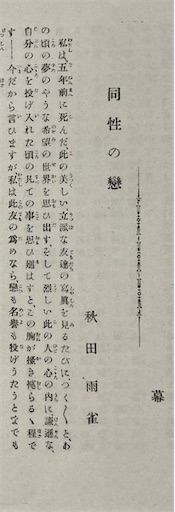 同性の戀
幕
秋田雨雀
私は、五年前に死んだ、此の美しい立派な友達の寫眞を見るたびに、つく〴〵と、あ
の頃の夢のやうな希望の世界を思ひ出す。そして烈しい此の人の心の内に、謙遜な、
自分の心を投げ入れた頃の凡ての事を思ひ廻はすと、この胸が掻き裂らるゝ程で
す――今だから言ひますが、私は此友の爲めなら、戀も名譽も投げうたうとまでも